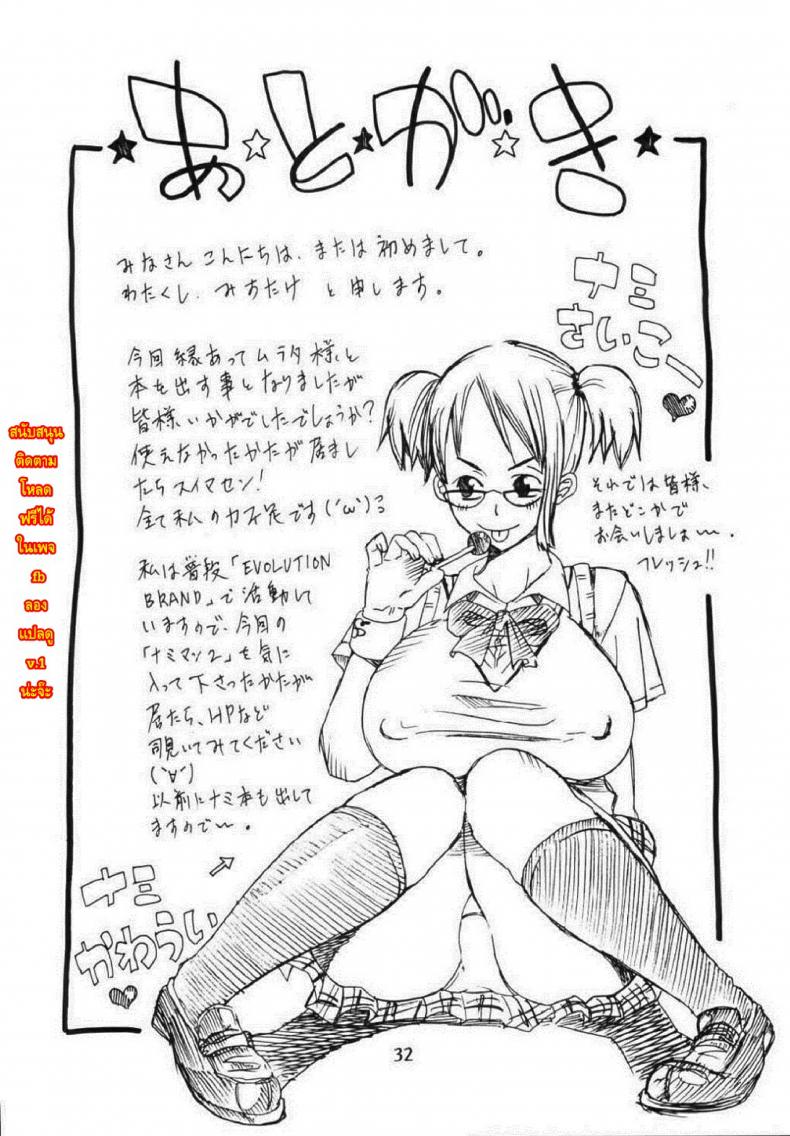 あとがき
みなさん こんにちは、または 初めまして。
わたくし、みすたけ と申します。
ナミ
さいこー
今回縁あってムラタ様と
本を出す事となりましたが
皆様いかがでしたでしょうか?
使えなかったかたが居まし
たらスイマセン!
全て私のカ不足です('ω')ミ
私は普段「EVOLUTION
BRAND」で活動して
いますので、今回の
「ナミマン2」を気に
入って下さったかたが
居たら、HPなど
覗いてみてください
('∀')
以前にナミ本も出して
ますので〜。
それでは皆様、
またどこかで
お会いしましょ〜。
フレッシュ!!
ナミ
かわうい
สนับสนุน
ติดตาม
โหลด
ฟรีได้
ในเพจ
fb
ลอง
แปลดู
v.1
น่ะจ๊ะ
32